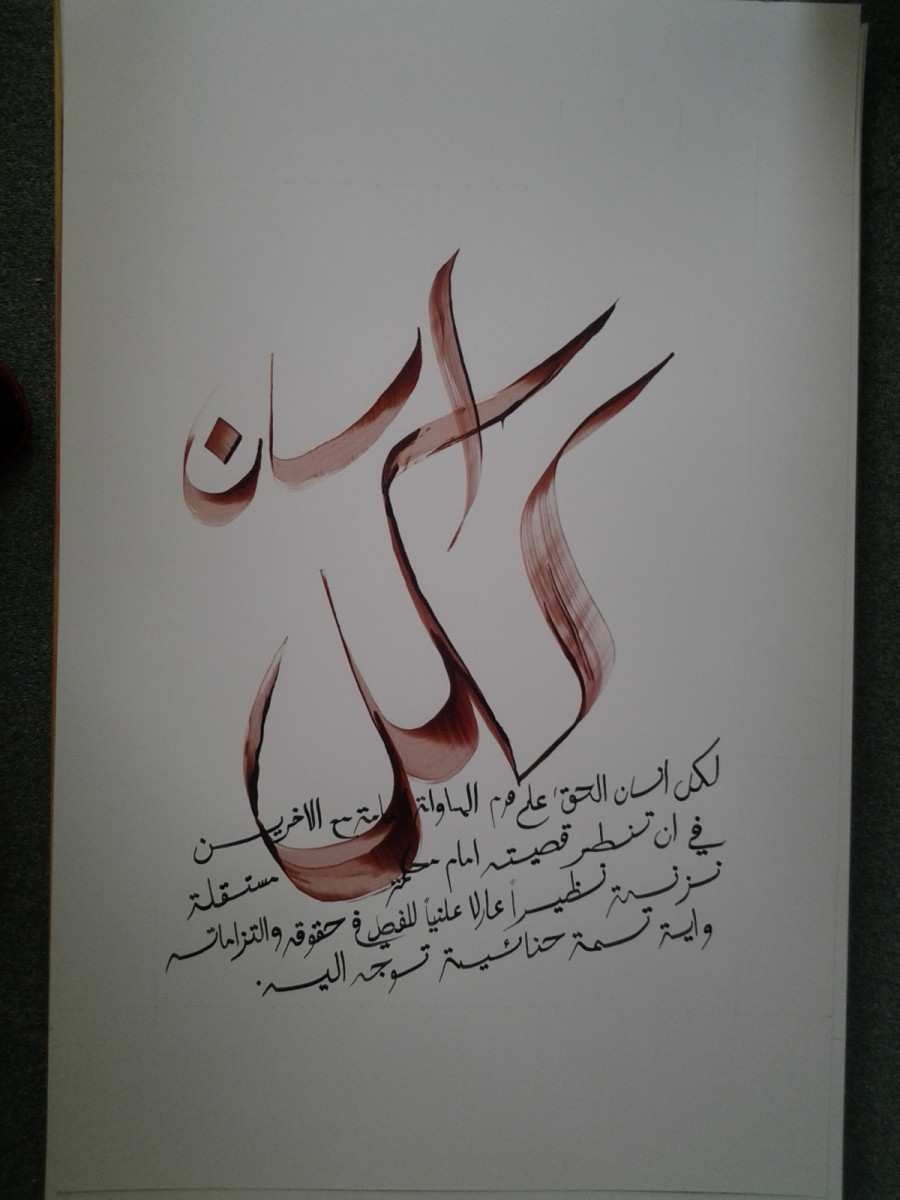 لكل انسان
لكل انسان الحق، على قدم المساواة التامة مع الاخرين
في ان تنظر قضيته امام محكمة مستقلة
نزيهة نظيراً عادلا علنياً للفصل في حقوقه والتزاماته
واية تهمة جنائية توجه اليه.